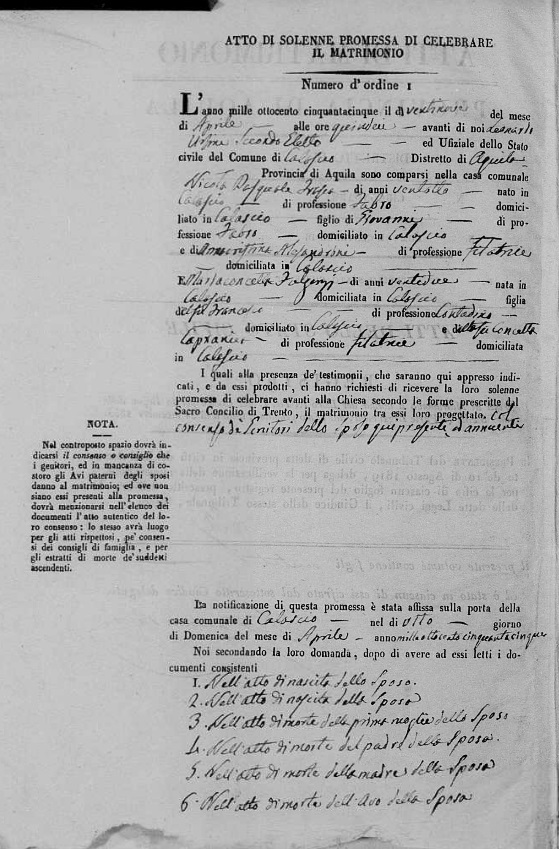 ATTO DI SOLENNE PROMESSA DI CELEBRARE
IL MATRIMONIO
Numero d'ordine 1
L'anno mille ottocento cinquantacinque il dì ventinove del mese
di Aprile — alle ore quindeci — avanti di noi Leonardo
Secondo Eletto — ed Ufiziale dello Stato
civile del Comune di Calascio — Distretto di Aquila —
Provincia di Aquila sono comparsi nella casa comunale
Nicola Pasquale — di anni ventotto — nato in
Calascio — di professione Fabro — domici-
liato in Calascio — figlio di Giovanni — di pro-
fessione Fabro — domiciliato in Calascio
e di — di professione Filatrice
— domiciliata in Calascio —
E Mariaconcetta — di anni ventidue — nata in
Calascio — domiciliata in Calascio — figlia
del fu Francesco — di professione Contadino —
domiciliato in Calascio — e della fu Concetta
— di professione Filatrice — domiciliata
in Calascio —
I quali alla presenza de' testimonii, che saranno qui appresso indi-
cati, e da essi prodotti, ci hanno richiesti di ricevere la loro solenne
promessa di celebrare avanti alla Chiesa secondo le forme prescritte dal
Sacro Concilio di Trento, il matrimonio tra essi loro progettato. col
consenso de' Genitori dello sposo qui presente ed annuente
NOTA.
Nel controposto spazio dovrà in-
dicarsi il consenso o consiglio che
i genitori, ed in mancanza di co-
storo gli Avi paterni degli sposi
danno al matrimonio; ed ove non
siano essi presenti alla promessa,
dovrà menzionarsi nell'elenco dei
documenti l'atto autentico del lo-
ro consenso: lo stesso avrà luogo
per gli atti rispettosi, pe' consen-
si dei consigli di famiglia, e per
gli estratti di morte de' suddetti
ascendenti.
La notificazione di questa promessa è stata affissa sulla porta della
casa comunale di Calascio — nel dì otto — giorno
di Domenica del mese di Aprile — anno mille ottocento cinquantacinque
Noi secondando la loro domanda, dopo di avere ad essi letti i do-
cumenti consistenti
1. Nell'atto di nascita dello Sposo.
2. Nell'atto di nascita della Sposa
3. Nell'atto di morte della prima moglie dello Sposo
4. Nell'atto di morte del padre della Sposa.
5. Nell'atto di morte della madre della Sposa
6. Nell'atto di morte dell'Avo della Sposa